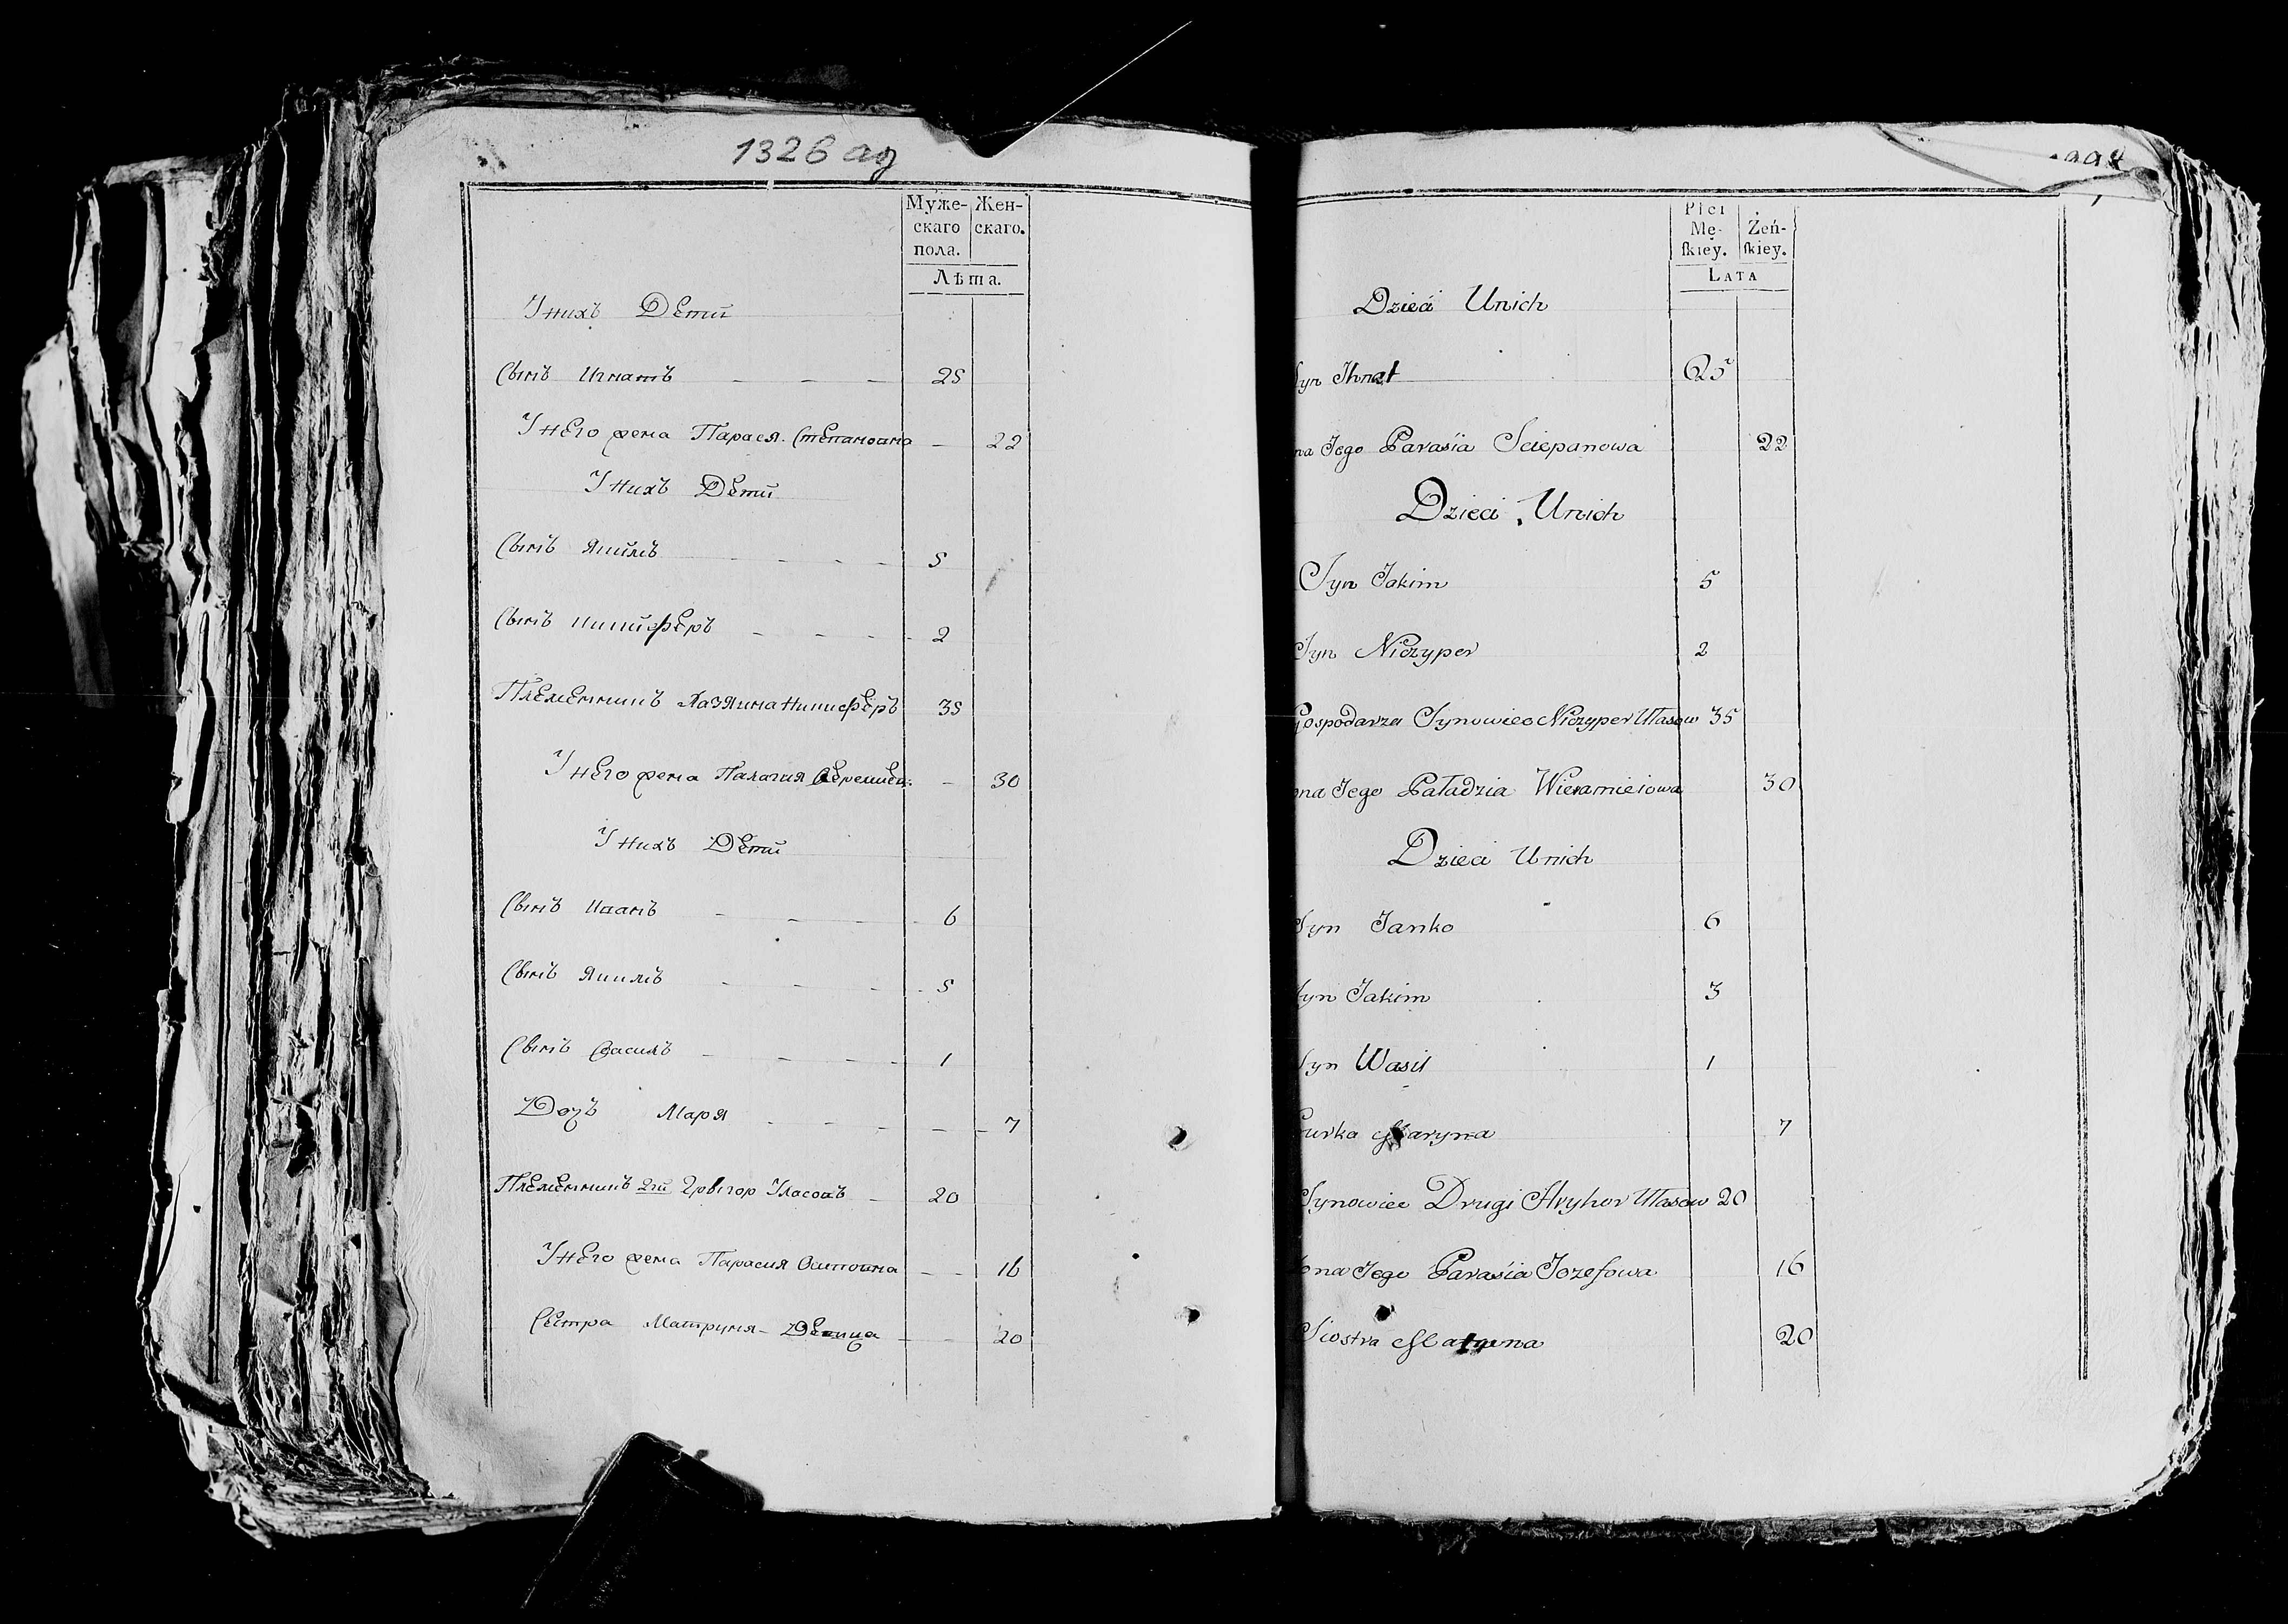 1326 ад
Муже-
скаго
пола.
Жен-
скаго.
Лѣта.
У нихъ Дети
Сынъ Игнатъ 25
У него жена Парася Степановна 22
У нихъ Дети
Сынъ Якимъ 5
Сынъ Ничиферъ 2
Племенникъ Хазяина Ничиферъ 35
У него жена Палагия Веремиев: 30
У нихъ Дети
Сынъ Иванъ 6
Сынъ Якимъ 5
Сынъ Василъ 1
Дочъ Маря 7
Племенникъ 2й Грыгор Уласовъ 20
У него жена Парасия Осиповна 16
Сестра Матруня Девица 20
Płci
Mę-
skiey.
Żeń-
skiey.
LATA
Dzieci Unich
Syn Ihnat 25
na Jego Parasia Sciepanowa 22
Dzieci Unich
Syn Jakim 5
Syn Niczyper 2
Gospodarza Synowiec Niczyper Ułasow 35
ona Jego Paładzia Wieramieiowa 30
Dzieci Unich
Syn Janko 6
Syn Jakim 3
Syn Wasil 1
Curka Maryna 7
Synowiec Drugi Hryhor Ułasow 20
ona Jego Parasia Jozefowa 16
Siostra Matruna 20